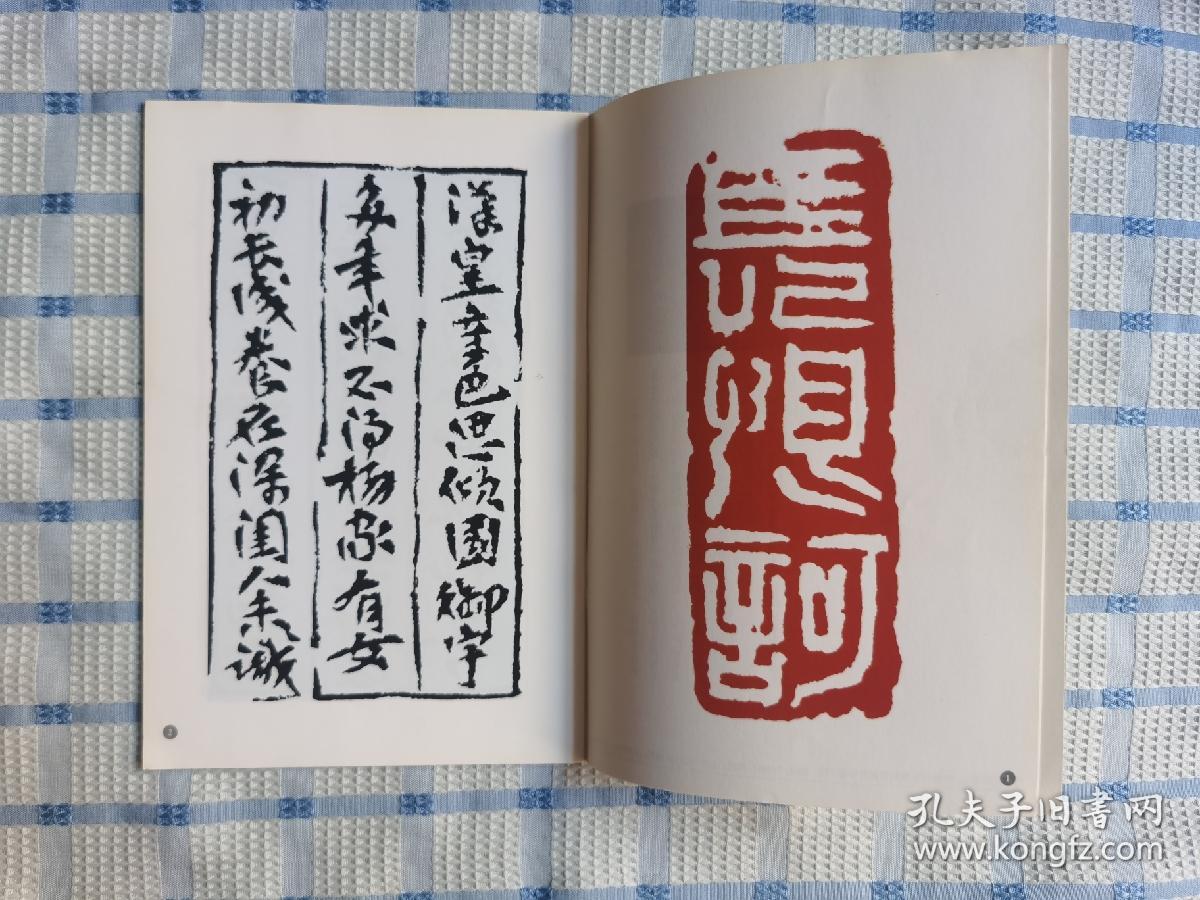 長恨訶
1
漢皇重色思傾國御宇
多年求不得楊家有女
初長成養在深閨人未識
2
孔夫子旧书网
www.kongfz.com